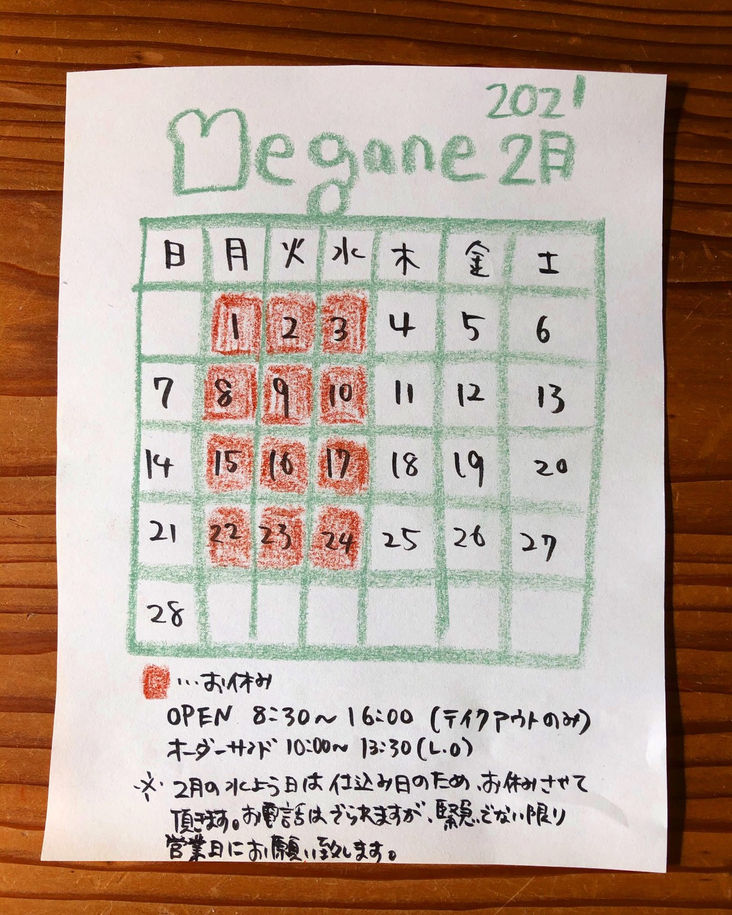 2021
Megane 2月
日 月 火 水 木 金 土
1 2 3 4 5 6
7 8 9 10 11 12 13
14 15 16 17 18 19 20
21 22 23 24 25 26 27
28
…お休み
OPEN 8:30〜16:00 (テイクアウトのみ)
オーダーサンド 10:00〜13:30(L.O)
※2月の水よう日は仕込み日のため、お休みさせて
頂きます。お電話はでられますが、緊急でない限り
営業日にお願い致します。